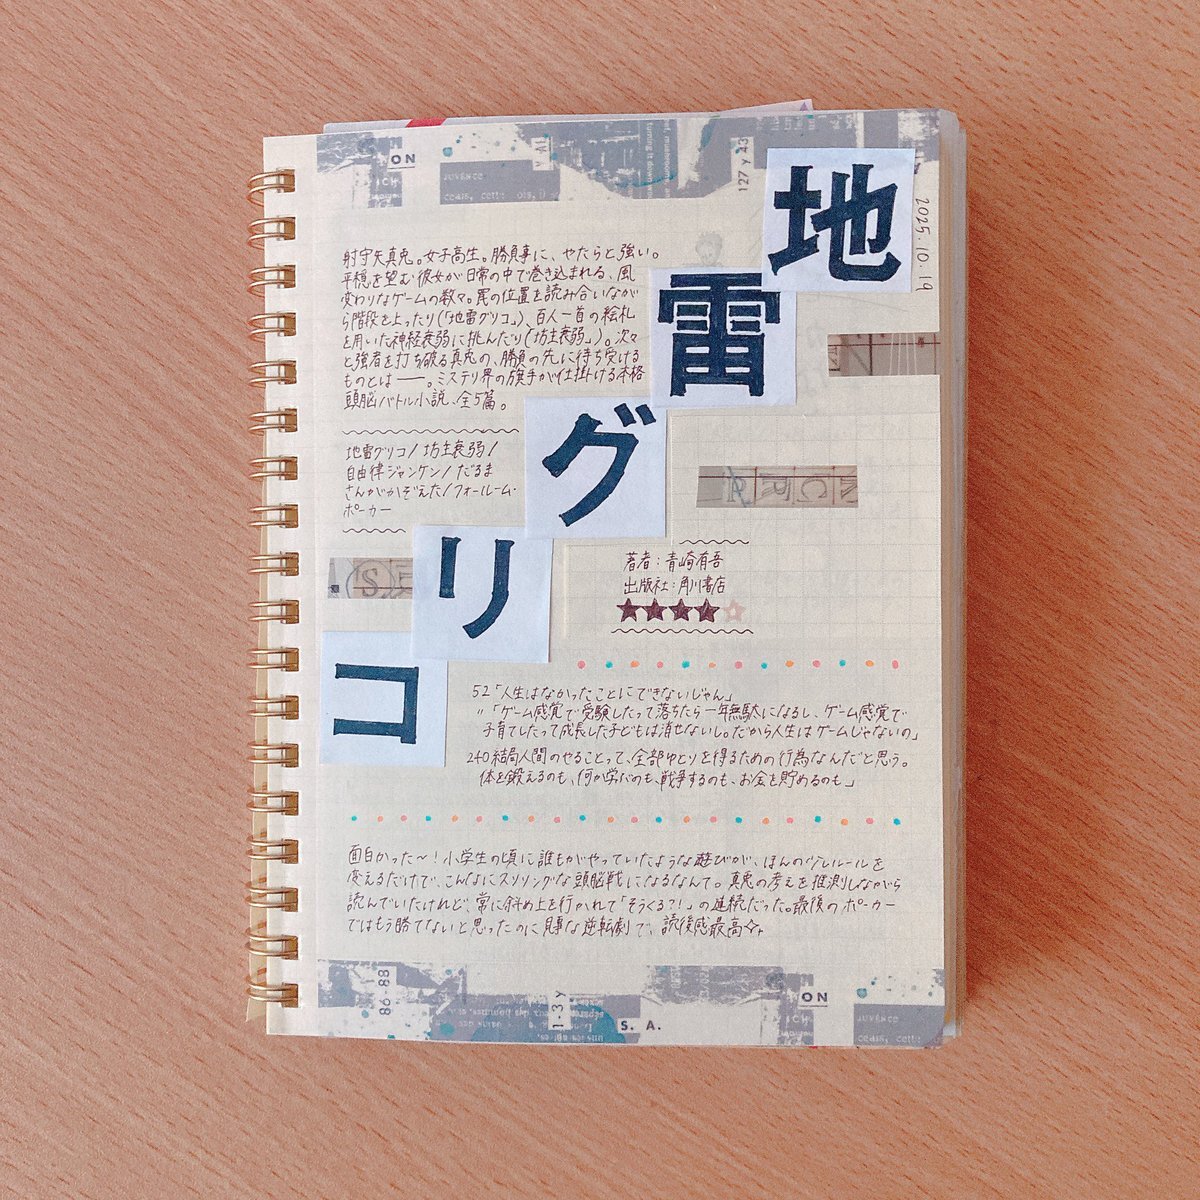 ON
JUVENCE
ceais, cette ois,
127 y 43
2025.10.19
地雷グリコ
射守矢真兎。女子高生。勝負事に、やたらと強い。
平穏を望む彼女が日常の中で巻き込まれる、風
変わりなゲームの数々。罠の位置を読み合いなが
ら階段を上ったり(「地雷グリコ」)、百人一首の絵札
を用いた神経衰弱に挑んだり(「坊主衰弱」)。次々
と強者を打ち破る真兎の、勝負の先に待ち受ける
ものとは――。ミステリ界の旗手が仕掛ける本格
頭脳バトル小説、全5篇。
地雷グリコ/坊主衰弱/
自由律ジャンケン/だるま
さんがかぞえた/フォールーム・
ポーカー
著者:青崎有吾
出版社:角川書店
★★★★☆
52「人生はなかったことにできないじゃん」
〃「ゲーム感覚で受験したって落ちたら一年無駄になるし、ゲーム感覚で
子育てしたって成長した子どもは消せないし。だから人生はゲームじゃないの」
240結局人間のやることって、全部ゆとりを得るための行為なんだと思う。
体を鍛えるのも、何か学ぶのも、戦争するのも、お金を貯めるのも」
面白かった〜!小学生の頃に誰もがやっていたような遊びが、ほんの少しルールを
変えるだけで、こんなにスリリングな頭脳戦になるなんて。真兎の考えを推測しながら
読んでいたけれど、常に斜め上を行かれて「そうくる?!」の連続だった。最後のポーカー
ではもう勝てないと思ったのに見事な逆転劇で、読後感最高☆
86-88
1-3 y
S. A.
ON
JUVENCE
ceais, cette